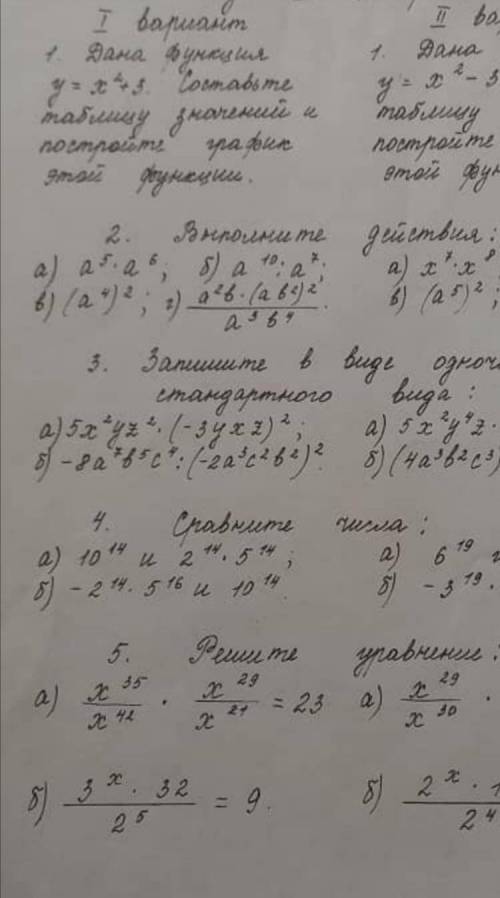 I вариант
II ва
1. Дана функция
y = x² + 3. Составьте
таблицу значений и
постройте график
этой функции.
1. Дана
y = x² - 3
таблицу
постройте
этой фун
2. Выполните действия:
а) a⁵ · a⁶; б) a¹⁰ : a⁷; а) x⁷ · x⁸
в) (a⁴)²; г) a²b · (ab²)² / a³b⁴. в) (a⁵)²;
3. Запишите в виде одноч
стандартного вида:
а) 5x²yz² · (-3yxz)²; а) 5x²y⁴z ·
б) -8a⁷b⁵c⁴ : (-2a³c²b²)². б) (4a³b²c³)
4. Сравните числа:
а) 10¹⁴ и 2¹⁴ · 5¹⁴; а) 6¹⁹
б) -2¹⁴ · 5¹⁶ и 10¹⁴. б) -3¹⁹ ·
5. Решите уравнение:
а) x³⁵ / x⁴² · x²⁹ / x²¹ = 23 а) x²⁹ / x³⁰ ·
б) 3ˣ · 32 / 2⁵ = 9. б) 2ˣ · 1 / 2⁴